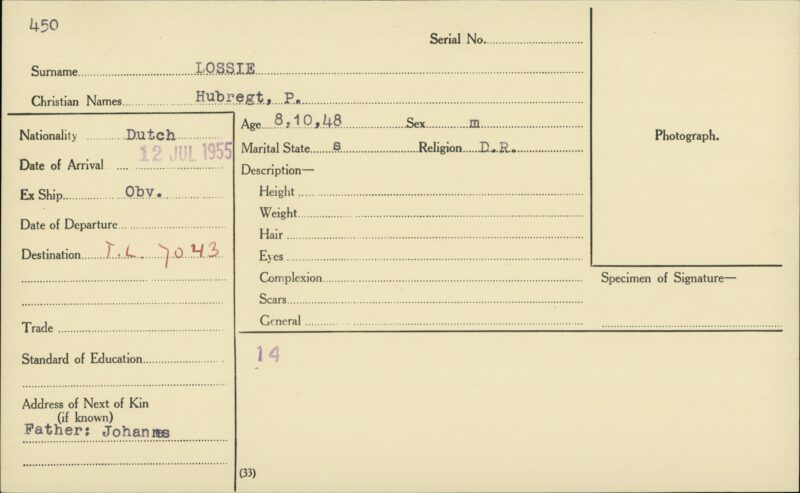 450
Serial No.
Surname LOSSIE
Christian Names Hubregt, P.
Nationality Dutch
Date of Arrival 12 JUL 1955
Ex Ship Obv.
Date of Departure
Destination T.L. 7043
Trade
Standard of Education
Address of Next of Kin
(if known)
Father: Johannes
Age 8,10,48 Sex m
Marital State s Religion D.R.
Description—
Height
Weight
Hair
Eyes
Complexion
Scars
General
14
(33)
Photograph.
Specimen of Signature—